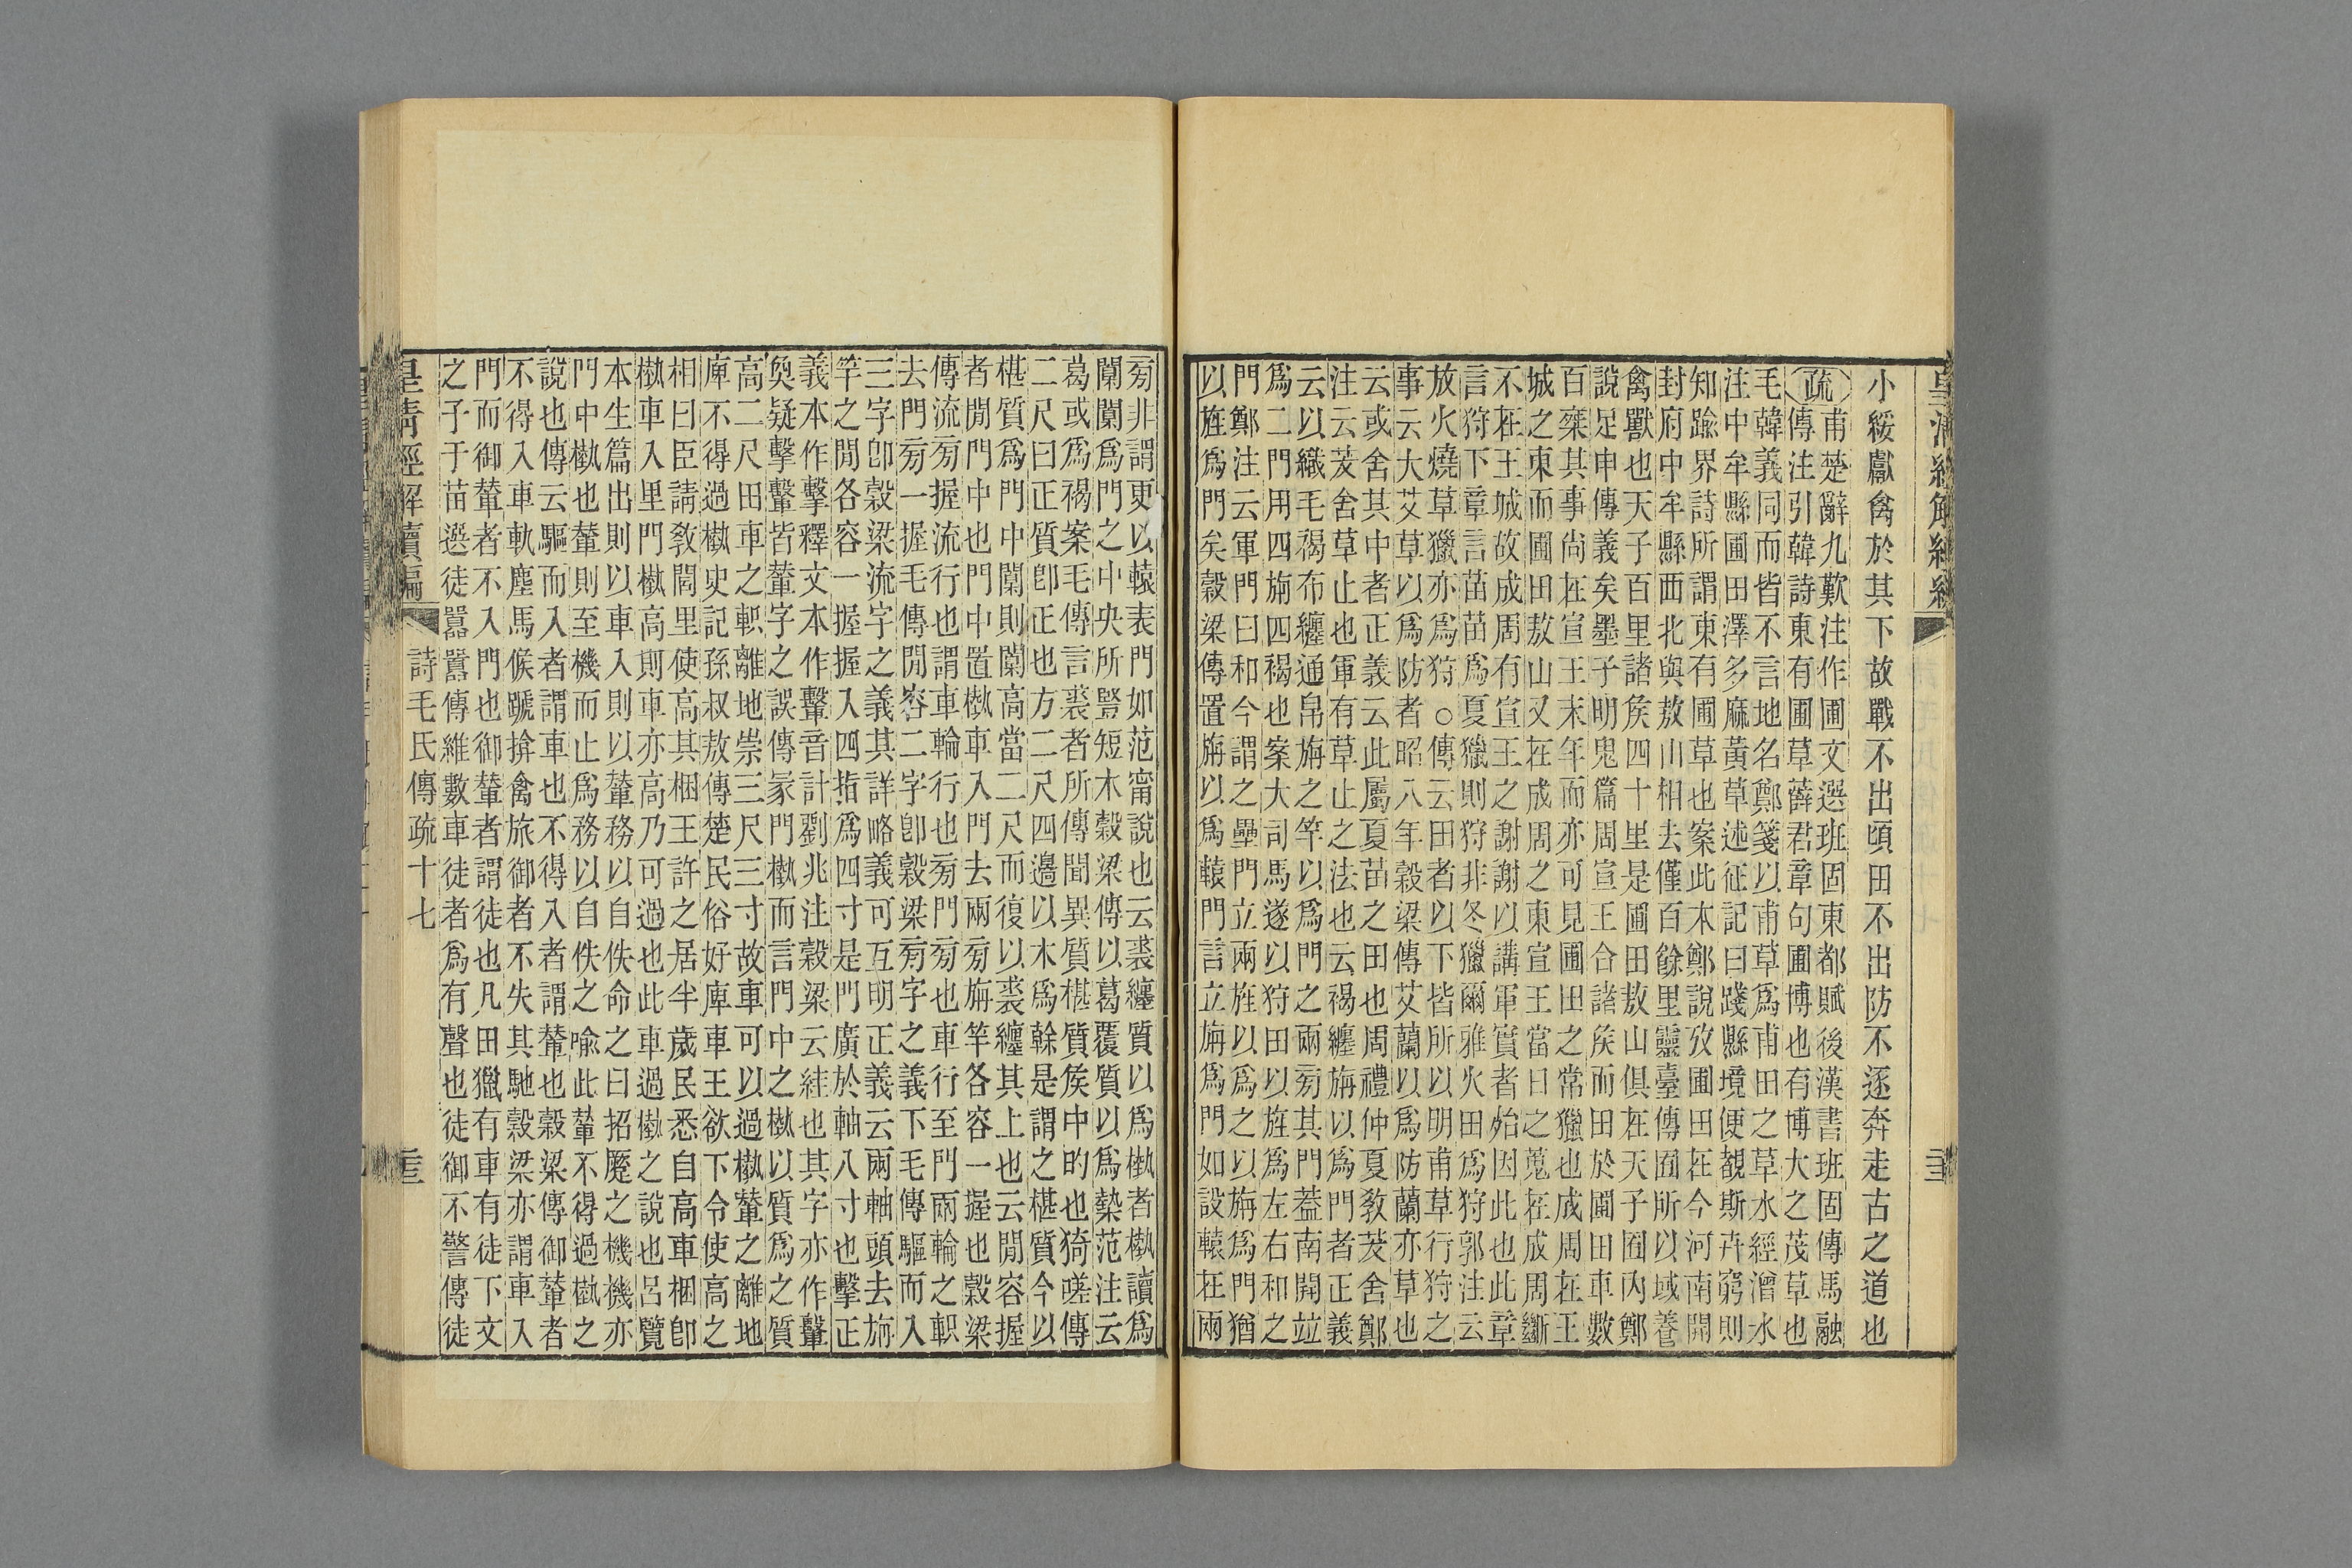 小綏獻禽於其下故戰不出頃田不出防不逐奔走古之道也
疏甫楚辭九歎注作圃文選班固東都賦後漢書班固傳馬融
傳注引韓詩東有圃草薛君章句圃博也有博大之茂草也
毛韓義同而皆不言地名鄭箋以甫草爲甫田之草水經澮水
注中牟縣圃田澤多麻黃草述征記曰踐縣境便覩斯卉窮則
知踰界詩所謂東有圃草也案此本鄭說攷圃田在今河南開
封府中牟縣西北與敖山相去僅百餘里靈臺傳囿所以域養
禽獸也天子百里諸侯四十里是圃田敖山俱在天子囿內鄭
說足申傳義矣墨子明鬼篇周宣王合諸矦而田於圃田車數
百椉其事尚在宣王末年而亦可見圃田之常獵也成周在王
城之東而圃田敖山又在成周之東宣王當日之蒐在成周斷
不在王城故成周有宣王之謝謝以講軍實者始因此也此章
言狩下章言苗苗爲夏獵則狩非冬獵爾雅火田爲狩郭注云
放火燒草獵亦爲狩○傳云田者以下皆所以明甫草行狩之
事云大艾草以爲防者昭八年穀梁傳艾蘭以爲防蘭亦草也
云或舍其中者正義云此屬夏苗之田也周禮仲夏敎茇舍鄭
注云茇舍草止也軍有草止之法也云褐纏旃以爲門者正義
云以織毛褐布纏通帛旃之竿以爲門之兩㫄其門葢南開竝
爲二門用四旃四褐也案大司馬遂以狩田以旌爲左右和之
門鄭注云軍門曰和今謂之壘門立兩旌以爲之以旃爲門猶
以旌爲門矣穀梁傳置旃以爲轅門言立旃爲門如設轅在兩
㫄非謂更以轅表門如范甯說也云裘纏質以爲槸者槸讀爲
闑闑爲門之中央所豎短木穀梁傳以葛覆質以爲槷范注云
葛或爲褐案毛傳言裘者所傳聞異質椹質矦中旳也猗嗟傳
二尺曰正質卽正也方二尺四邊以木爲榦是謂之椹質今以
椹質爲門中闑則闑高當二尺而復以裘纏其上也云閒容握
者閒門中也門中置槸車入門去兩㫄旃竿各容一握也穀梁
傳流㫄握流行也謂車輪行也㫄門㫄也車行至門兩輪之軹
去門㫄一握毛傳閒容二字卽穀梁㫄字之義下毛傳驅而入
三字卽穀梁流字之義其詳略義可互明正義云兩軸頭去旃
竿之閒各容一握握入四指爲四寸是門廣於軸八寸也擊正
義本作擊釋文本作轚音計劉兆注穀梁云絓也其字亦作轚
奐疑擊轚皆輂字之誤傳冡門槸而言門中之槸以質爲之質
高二尺田車之軹離地崇三尺三寸故車可以過槸輂之離地
庳不得過槸史記孫叔敖傳楚民俗好庳車王欲下令使高之
相曰臣請敎閭里使高其梱王許之居半歲民悉自高車梱卽
槸車入里門槸高則車亦高乃可過也此車過槸之說也呂覽
本生篇出則以車入則以輦務以自佚命之曰招蹷之機機亦
門中槸也輦則至機而止爲務以自佚之喩此輦不得過槸之
說也傳云驅而入者謂車也不得入者謂輂也穀梁傳御輂者
不得入車軌塵馬候蹏揜禽旅御者不失其馳穀梁亦謂車入
門而御輂者不入門也御輂者謂徒也凡田獵有車有徒下文
之子于苗選徒囂囂傳維數車徒者爲有聲也徒御不警傳徒
皇淸經解續編
詩毛氏傳疏十七